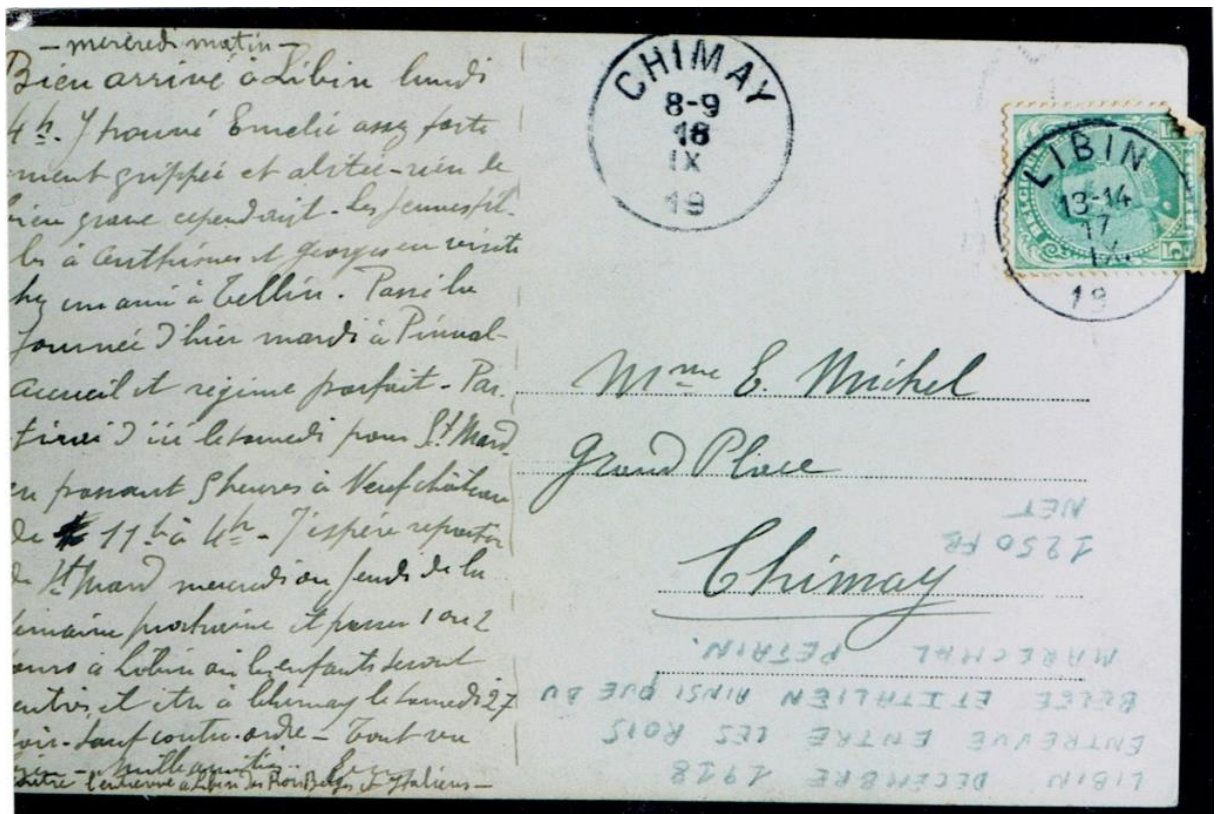 - mercredi matin -
Bien arrivé à Libin lundi
4 h. J'y trouvé Emelie assez forte
ment grippée et alitée - rien de
bien grave cependant. Les jeunes fil-
les à Anthisnes et Georges en visite
chez un ami à Tellin. Passé la
journée d'hier mardi à
accueil et régime parfait - Par-
tirai d'ici le samedi pour St Mard
en passant 5 heures à Neufchâteau
de 11 h à 4 h - J'espère repartir
de St Mard mercredi ou jeudi de la
semaine prochaine et passer 1 ou 2
jours à Libin où les enfants seront
rentrés, et être à Chimay le samedi 27
soir. Sauf contre-ordre - Tout va
bien - Mille amitiés
l'entrevue à Libin des Rois Belges & Italiens -
CHIMAY
8-9
18
IX
19
LIBIN
13-14
17
IX
19
Mme E. Michel
Grand Place
Chimay
1250 FR
NET
LIBIN DECEMBRE 1918
ENTREVUE ENTRE LES ROIS
BELGE ET ITALIEN AINSI QUE DU
MARECHAL PETAIN.